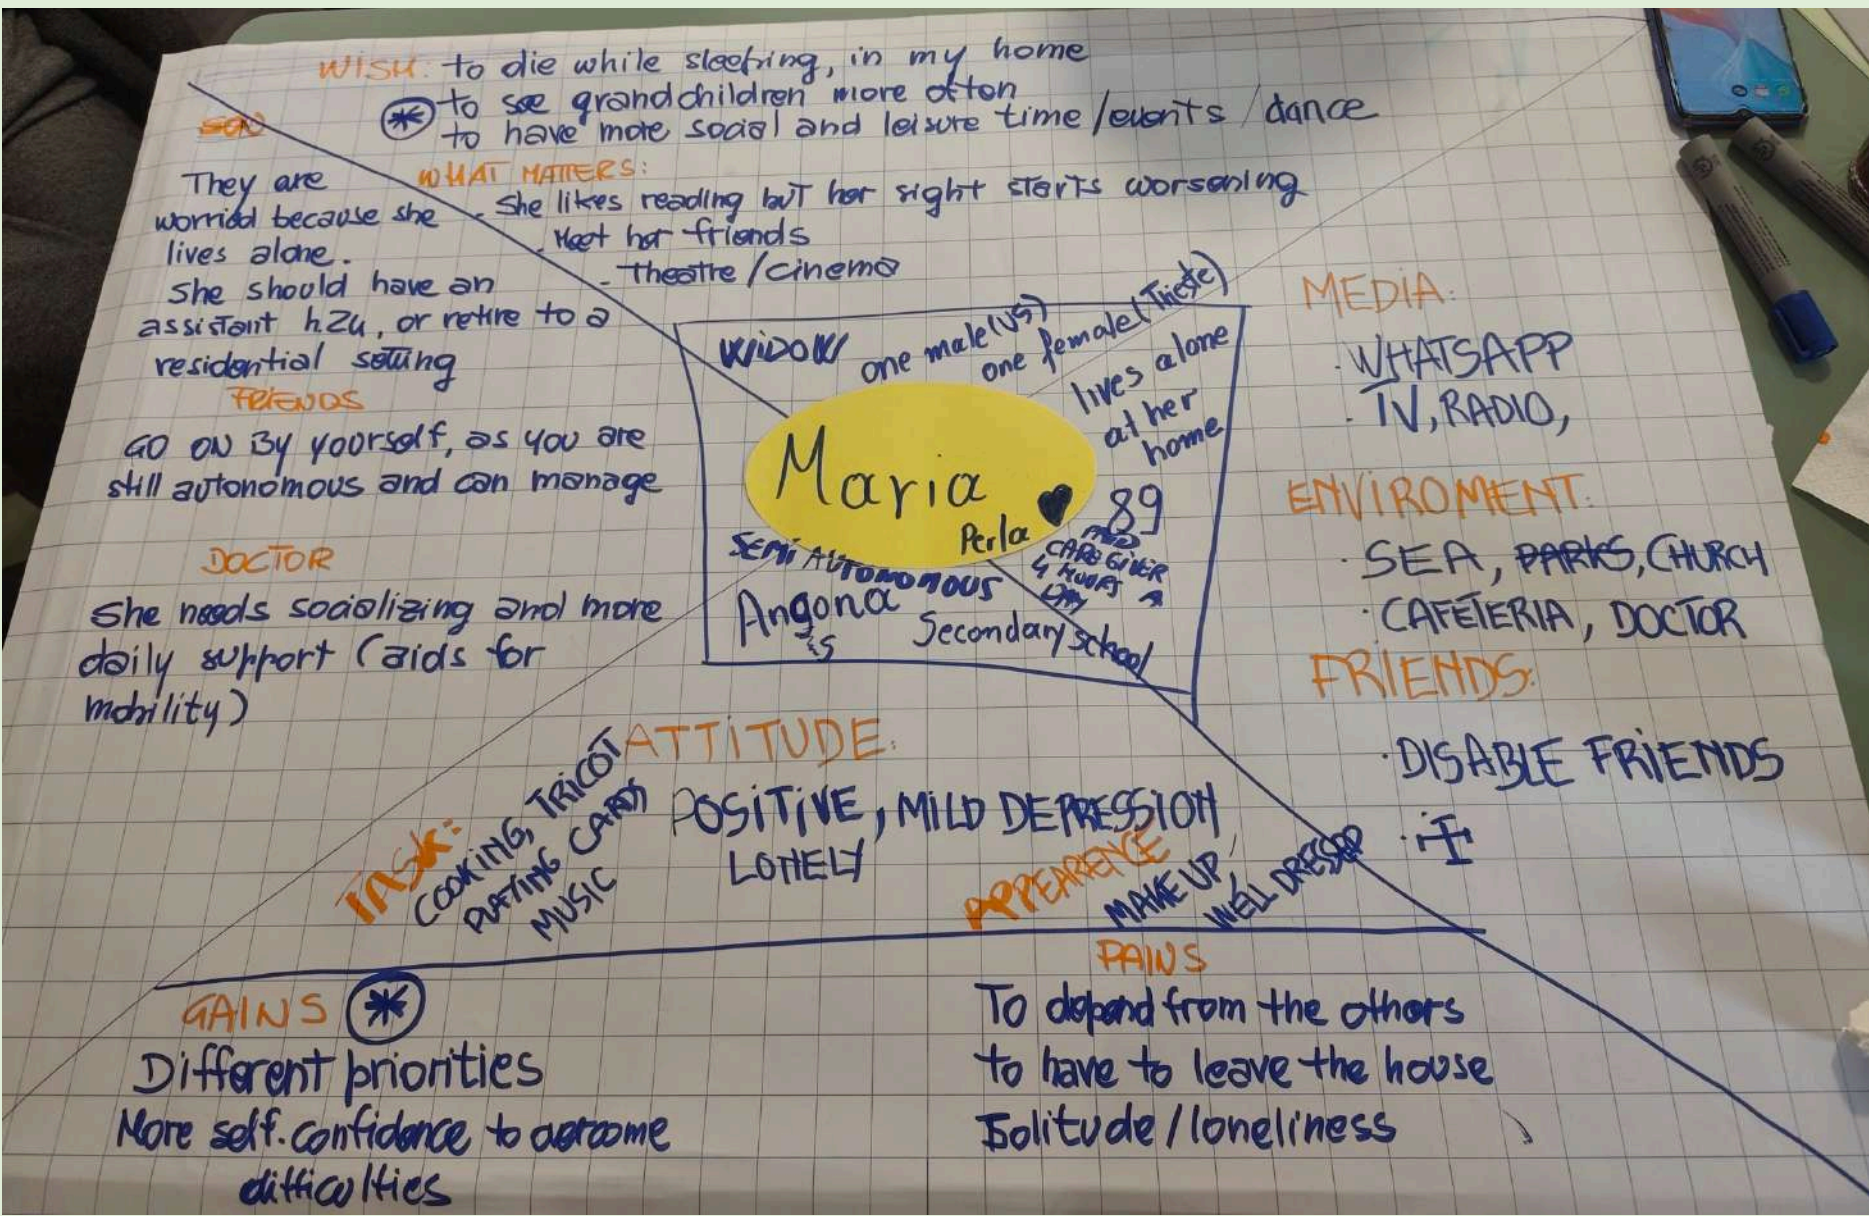 WISH: to die while sleeping, in my home
to see grandchildren more often
to have more social and leisure time/events/dance
WHAT MATTERS:
- She likes reading but her sight starts worsening
- Meet her friends
- Theatre/cinema
SON
They are
worried because she
lives alone.
She should have an
assistant h24, or retire to a
residential setting
FRIENDS
GO ON By yourself, as you are
still autonomous and can manage
DOCTOR
She needs socializing and more
daily support (aids for
mobility)
WIDOW
one male (US)
one female (Trieste)
lives alone
at her
home
Maria
Perla
89
PAID
CARE GIVER
4 HOURS A
DAY
SEMI AUTONOMOUS
Angona
Secondary school
MEDIA:
· WHATSAPP
· TV, RADIO,
ENVIROMENT:
· SEA, PARKS, CHURCH
· CAFETERIA, DOCTOR
FRIENDS:
· DISABLE FRIENDS
ATTITUDE:
POSITIVE, MILD DEPRESSION
LONELY
TASK:
COOKING, TRICOT
PLAYING CARDS
MUSIC
APPEARENCE
MAKE UP,
WELL DRESSED
GAINS
Different priorities
More self-confidence to overcome
difficulties
PAINS
To depend from the others
to have to leave the house
Solitude/loneliness